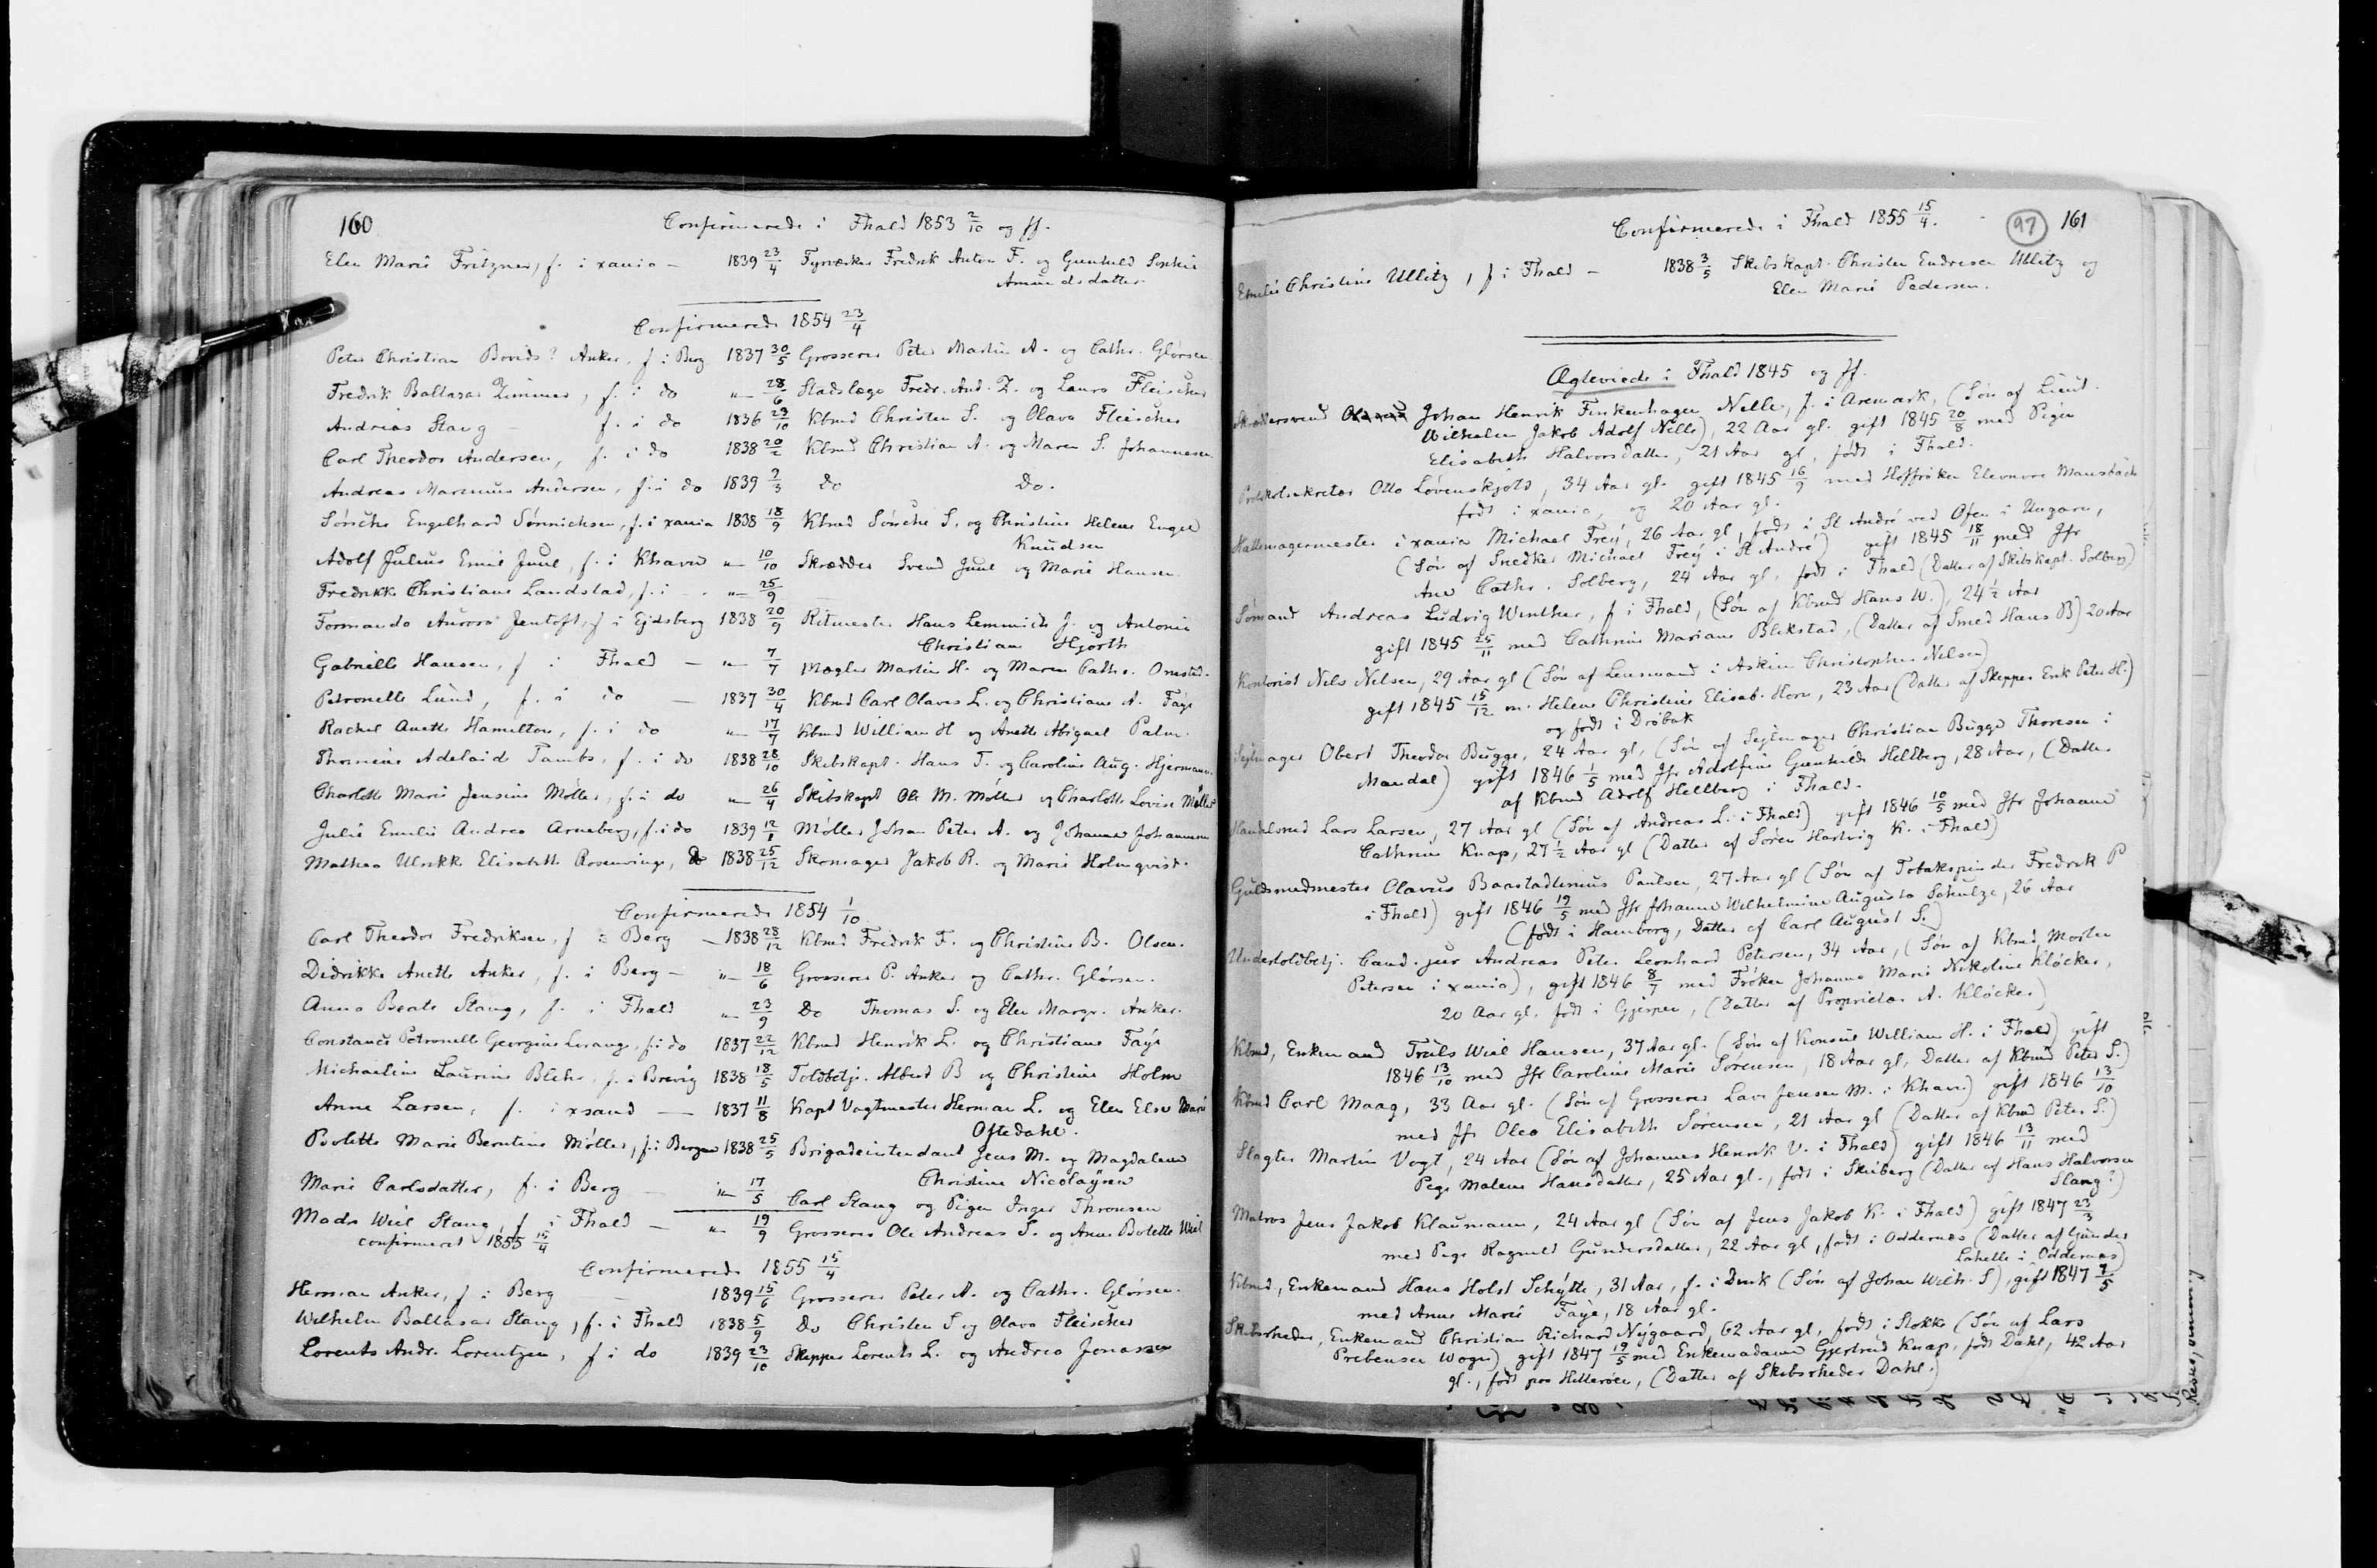 160
Confirmerede i Fhald 1853 2/10 og ff.
Elen Marie Fritzner, f. i xania – 1839 23/4 Fyrvæsker Fredrik Anton F. og Gunhild Sophie
Amundsdatter.
Confirmerede 1854 23/4
Peter Christian Bovids? Anker, f. i Berg 1837 30/5 Grosserer Peter Martin A. og Cathr. Glörsen.
Fredrik Baltasar Zimmer, f. i do „– 28/6 Stadslæge Fredr. And. Z. og Laura Fleischer
Andreas Stang – f. i do 1836 29/10 Kbmd Christen S. og Olava Fleischer
Carl Theodor Andersen, f. i do 1838 20/2 Kbmd Christian A. og Maren S. Johannesen
Andreas Marenius Andersen, f. i do 1839 ?/3 Do Do.
Sönche Engelhard Sönnichsen, f. i xania 1838 18/9 Kbmd Sönche S. og Christine Helene Engel
Knudsen
Adolf Julius Emil Juul, f. i Khavn „– 10/10 Skrædder Svend Juul og Marie Hansen.
Fredrikke Christiane Landstad, f. i – . „– 25/9
Formanda Aurora Jentoft, f. i Ejdsberg 1838 20/9 Ritmester Hans Lemmich J. og Antonie
Christian Hjorth
Gabrielle Hansen, f. i Fhald – „– 7/7 Mægler Martin H. og Maren Cathr. Onestad.
Petronelle Lund, f. i do – 1837 30/4 Kbmd Carl Olaves L. og Christiane A. Faÿe
Rachel Anette Hamilton, f. i do „– 17/7 Kbmd William H og Anette Abigael Palm.
Thomine Adelaid Tambs, f. i do 1838 28/10 Skibskapt. Hans T. og Caroline Aug. Hjermann.
Charlotte Marie Jensine Möller, f. i do „– 26/4 Skibskapt Ole M. Möller og Charlotte Lovise Möller
Julie Emilie Andrea Arneberg, f. i do 1839 12/1 Möller Johan Peter A. og Johanne Johannesen
Mathea Ulrikke Elisabeth Rosenvinge, Do 1838 25/12 Skomager Jakob R. og Marie Holmqvist.
Confirmerede 1854 1/10
Carl Theodor Fredriksen, f. i Berg – 1838 28/12 Kbmd Fredrik F. og Christine B. Olsen.
Didrikke Anette Anker, f. i Berg – „– 18/6 Grosserer P. Anker og Cathr. Glörsen.
Anna Beate Stang, f. i Fhald „– 23/9 Do Thomas S. og Elen Margr. Anker.
Constance Petronelle Georgine Lorang, f. i do 1837 22/12 Kbmd Henrik L. og Christiane Faÿe
Michaeline Laurine Blehr, f. i Brevig 1838 18/5 Toldbetj. Albert B og Christine Holm
Anne Larsen, f. i xsand — 1837 11/8 Kapt Vagtmester Herman L. og Elen Else Marie
Oftedahl.
Bolette Marie Berntine Möller, f. i Bergen 1838 25/5 Brigadeintendant Jens M. og Magdalena
Christine Nicolaÿsen
Marie Carlsdatter, f. i Berg — „– 17/5 Carl Stang og Pigen Inger Thronsen
Mads Wiel Stang, f. i Fhald – „– 19/9 Grosserer Ole Andreas S. og Anne Bolette Wiel
confirmeret 1855 15/4
Confirmerede 1855 15/4
Herman Anker, f. i Berg — 1839 15/6 Grosserer Peter A. og Cathr. Glörsen.
Wilhelm Baltasar Stang, f. i Fhald 1838 5/9 Do Christen S og Olava Fleischer
Lorents Andr. Lorentzen, f. i do 1839 23/10 Skipper Lorents L. og Andrea Jonassen
Confirmerede i Fhald 1855 15/4. 97 161
Emilie Christine Ullitz, f. i Fhald – 1838 3/5 Skibskapt. Christen Endresen Ullitz og
Elen Marie Pedersen.
Ægteviede i Fhald 1845 og ff.
Skræddersvend Johan Henrik Finkenhagen Nelle, f. i Aremark, (Sön af Lieut.
Wilhelm Jakob Adolf Nelle), 22 Aar gl. gift 1845 20/8 med Pigen
Elisabeth Halvorsdatter, 21 Aar gl, född i Fhald.
Protokolsekretær Otto Lövenskjold, 34 Aar gl. gift 1845 16/9 med Hoffröken Eleonore Mansbach
född i xania, og 20 Aar gl.
Hattemagermester i xania Michael Freÿ, 26 Aar gl, födt i St André ved Ofen i Ungarn,
(Sön af Snedker Michael Freÿ i St André) gift 1845 18/11 med Jfr
Ane Cathr. Solberg, 24 Aar gl. födt i Fhald (Datter af Skibskapt. Solberg)
Sömand Andreas Ludvig Winther, f i Fhald, (Sön af Kbmd Hans W.), 24½ Aar
gift 1845 25/11 med Cathrine Mariane Blekstad, (Datter af Smed Hans B) 20 Aar
Kontorist Nils Nilsen, 29 Aar gl (Sön af Lensmand i Askim Christopher Nilsen)
gift 1845 15/12 m. Helene Christine Elisab. Horn, 23 Aar (Datter af Skipper Erik Peter H.)
og födt i Dröbak
Sejlmager Obert Theodor Bugge, 24 Aar gl, (Sön af Sejlmager Christian Bugge Thoresen i
Mandal) gift 1846 1/5 med Jfr Adolfine Gunhilde Hellberg, 28 Aar, (Datter
af Kbmd Adolf Hellberg i Fhald.
Handelsmd Lars Larsen, 27 Aar gl (Sön af Andreas L. i Fhald) gift 1846 10/5 med Jfr Johanne
Cathrine Knap, 27½ Aar gl (Datter af Sören Hartvig K. i Fhald)
Guldsmedmester Olavus Baastadlinius Paulsen, 27 Aar gl (Sön af Tobakspinder Fredrik P
i Fhald) gift 1846 19/5 med Jfr Johanne Wilhelmine Augusta Schulze, 26 Aar
(födt i Hamborg, Datter af Carl August S.)
Undertoldbetj. Cand. jur Andreas Peter Leonhard Petersen, 34 Aar, (Sön af Kbmd Morten
Petersen i xania), gift 1846 8/7 med Fröken Johanne Marie Nikoline Klöcker,
20 Aar gl. födt i Gjerpen, (Datter af Proprietær A. Klöcker)
Kbmd, Enkemand Truls Wiel Hansen, 37 Aar gl. (Sön af Konsul William H. i Fhald) gift
1846 13/10 med Jfr Caroline Marie Sörensen, 18 Aar gl, Datter af Kbmd Peter S.)
Kbmd Carl Maag, 33 Aar gl. (Sön af Grosserer Lave Jensen M. i Khavn) gift 1846 13/10
med Jfr Olea Elisabeth Sörensen, 21 Aar gl (Datter af Kbmd Peter S.)
Slagter Martin Vogt, 24 Aar (Sön af Johannes Henrik V. i Fhald) gift 1846 13/11 med
Pige Malene Hansdatter, 25 Aar gl., födt i Skiberg (Datter af Hans Halvorsen
Slang?)
Matros Jens Jakob Klaumann, 24 Aar gl (Sön af Jens Jakob K. i Fhald) gift 1847 23/3
med Pige Ragnild Gundersdatter, 22 Aar gl, födt i Oddernæs (Datter af Gunder
Lahelle i Oddernæs)
Kbmd, Enkemand Hans Holst Schÿtte, 31 Aar, f. i Dvik (Sön af Johan Wilh. S), gift 1847 7/5
med Anne Marie Faÿe, 18 Aar gl.
Skibsrheder, Enkemand Christian Richard Nÿgaard, 62 Aar gl, födt i Stokke (Sön af Lars
Prebensen Wogn) gift 1847 19/5 med Enkemadame Gjertrud Knap, födt Dahl, 42 Aar
gl., födt paa Hitterøen, (Datter af Skibsrheder Dahl.)